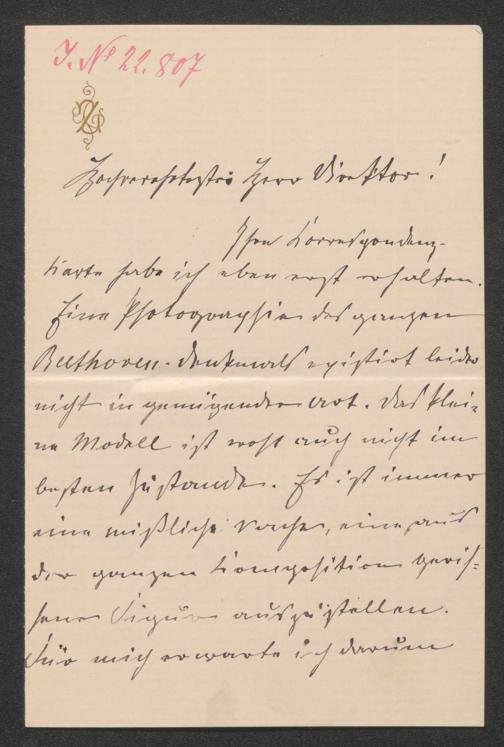 J. № 22.807
Hochverehrtester Herr Direktor!
Ihre Korrespondenz-
karte habe ich eben erst erhalten.
Eine Photographie des ganzen
Beethoven-Denkmals existirt leider
nicht in genügender Art. Das klei-
ne Modell ist wohl auch nicht im
besten Zustande. Es ist immer
eine mißliche Sache, eine aus
der ganzen Komposition geris-
sene Figur auszustellen.
Für mich erwarte ich darum